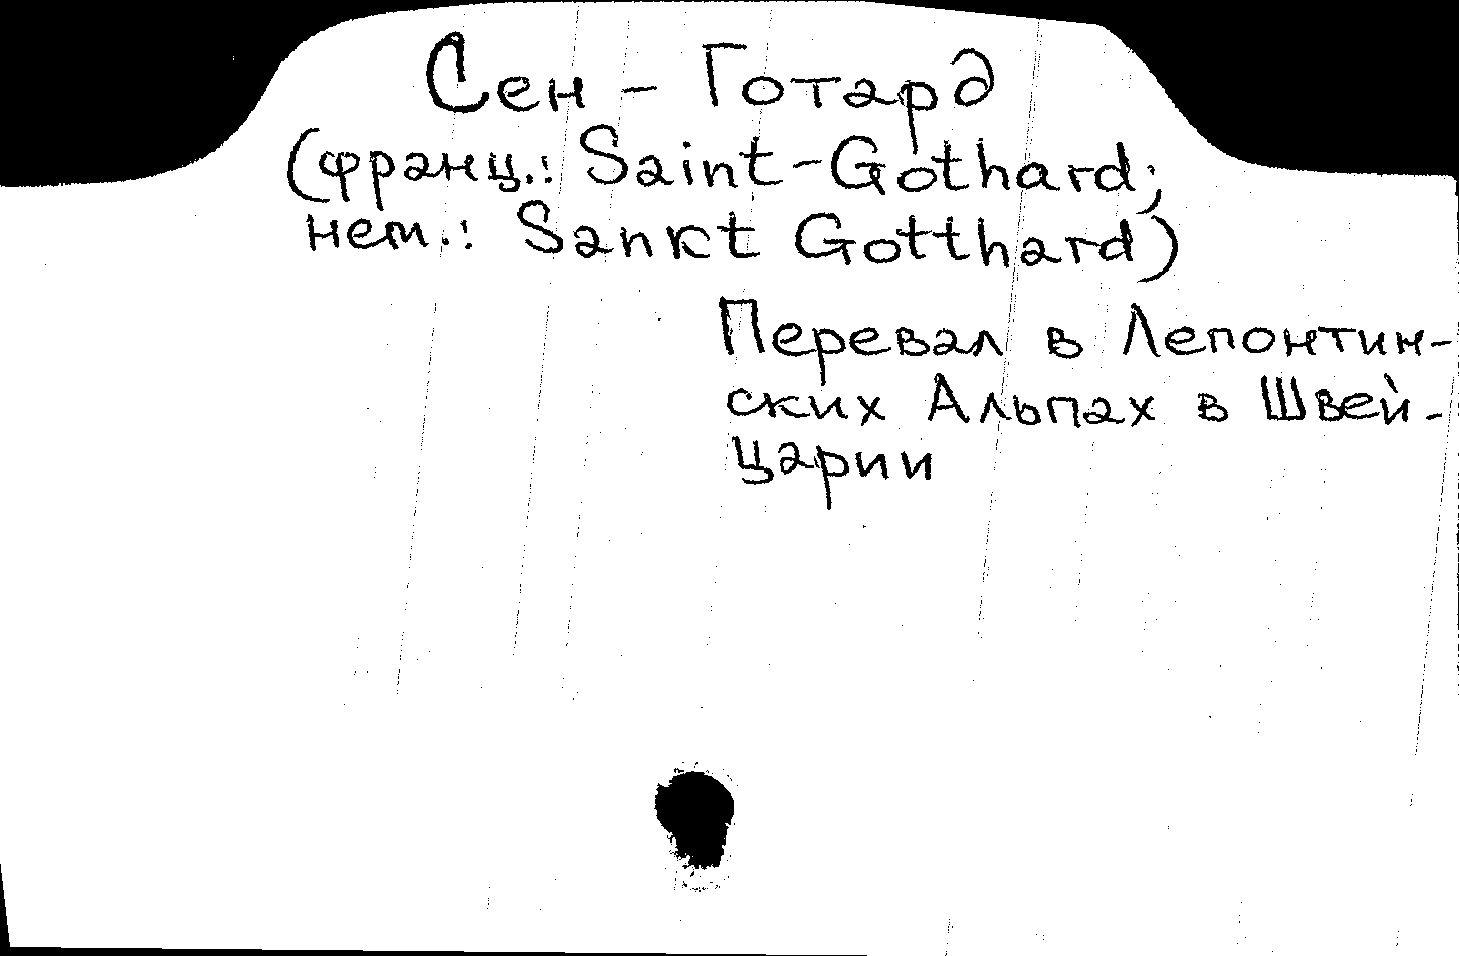 Сен - Готард
(франц.: Saint-Gothard;
нем.: Sankt Gotthard)
Перевал в Лепонтин-
ских Альпах в Швей-
царии